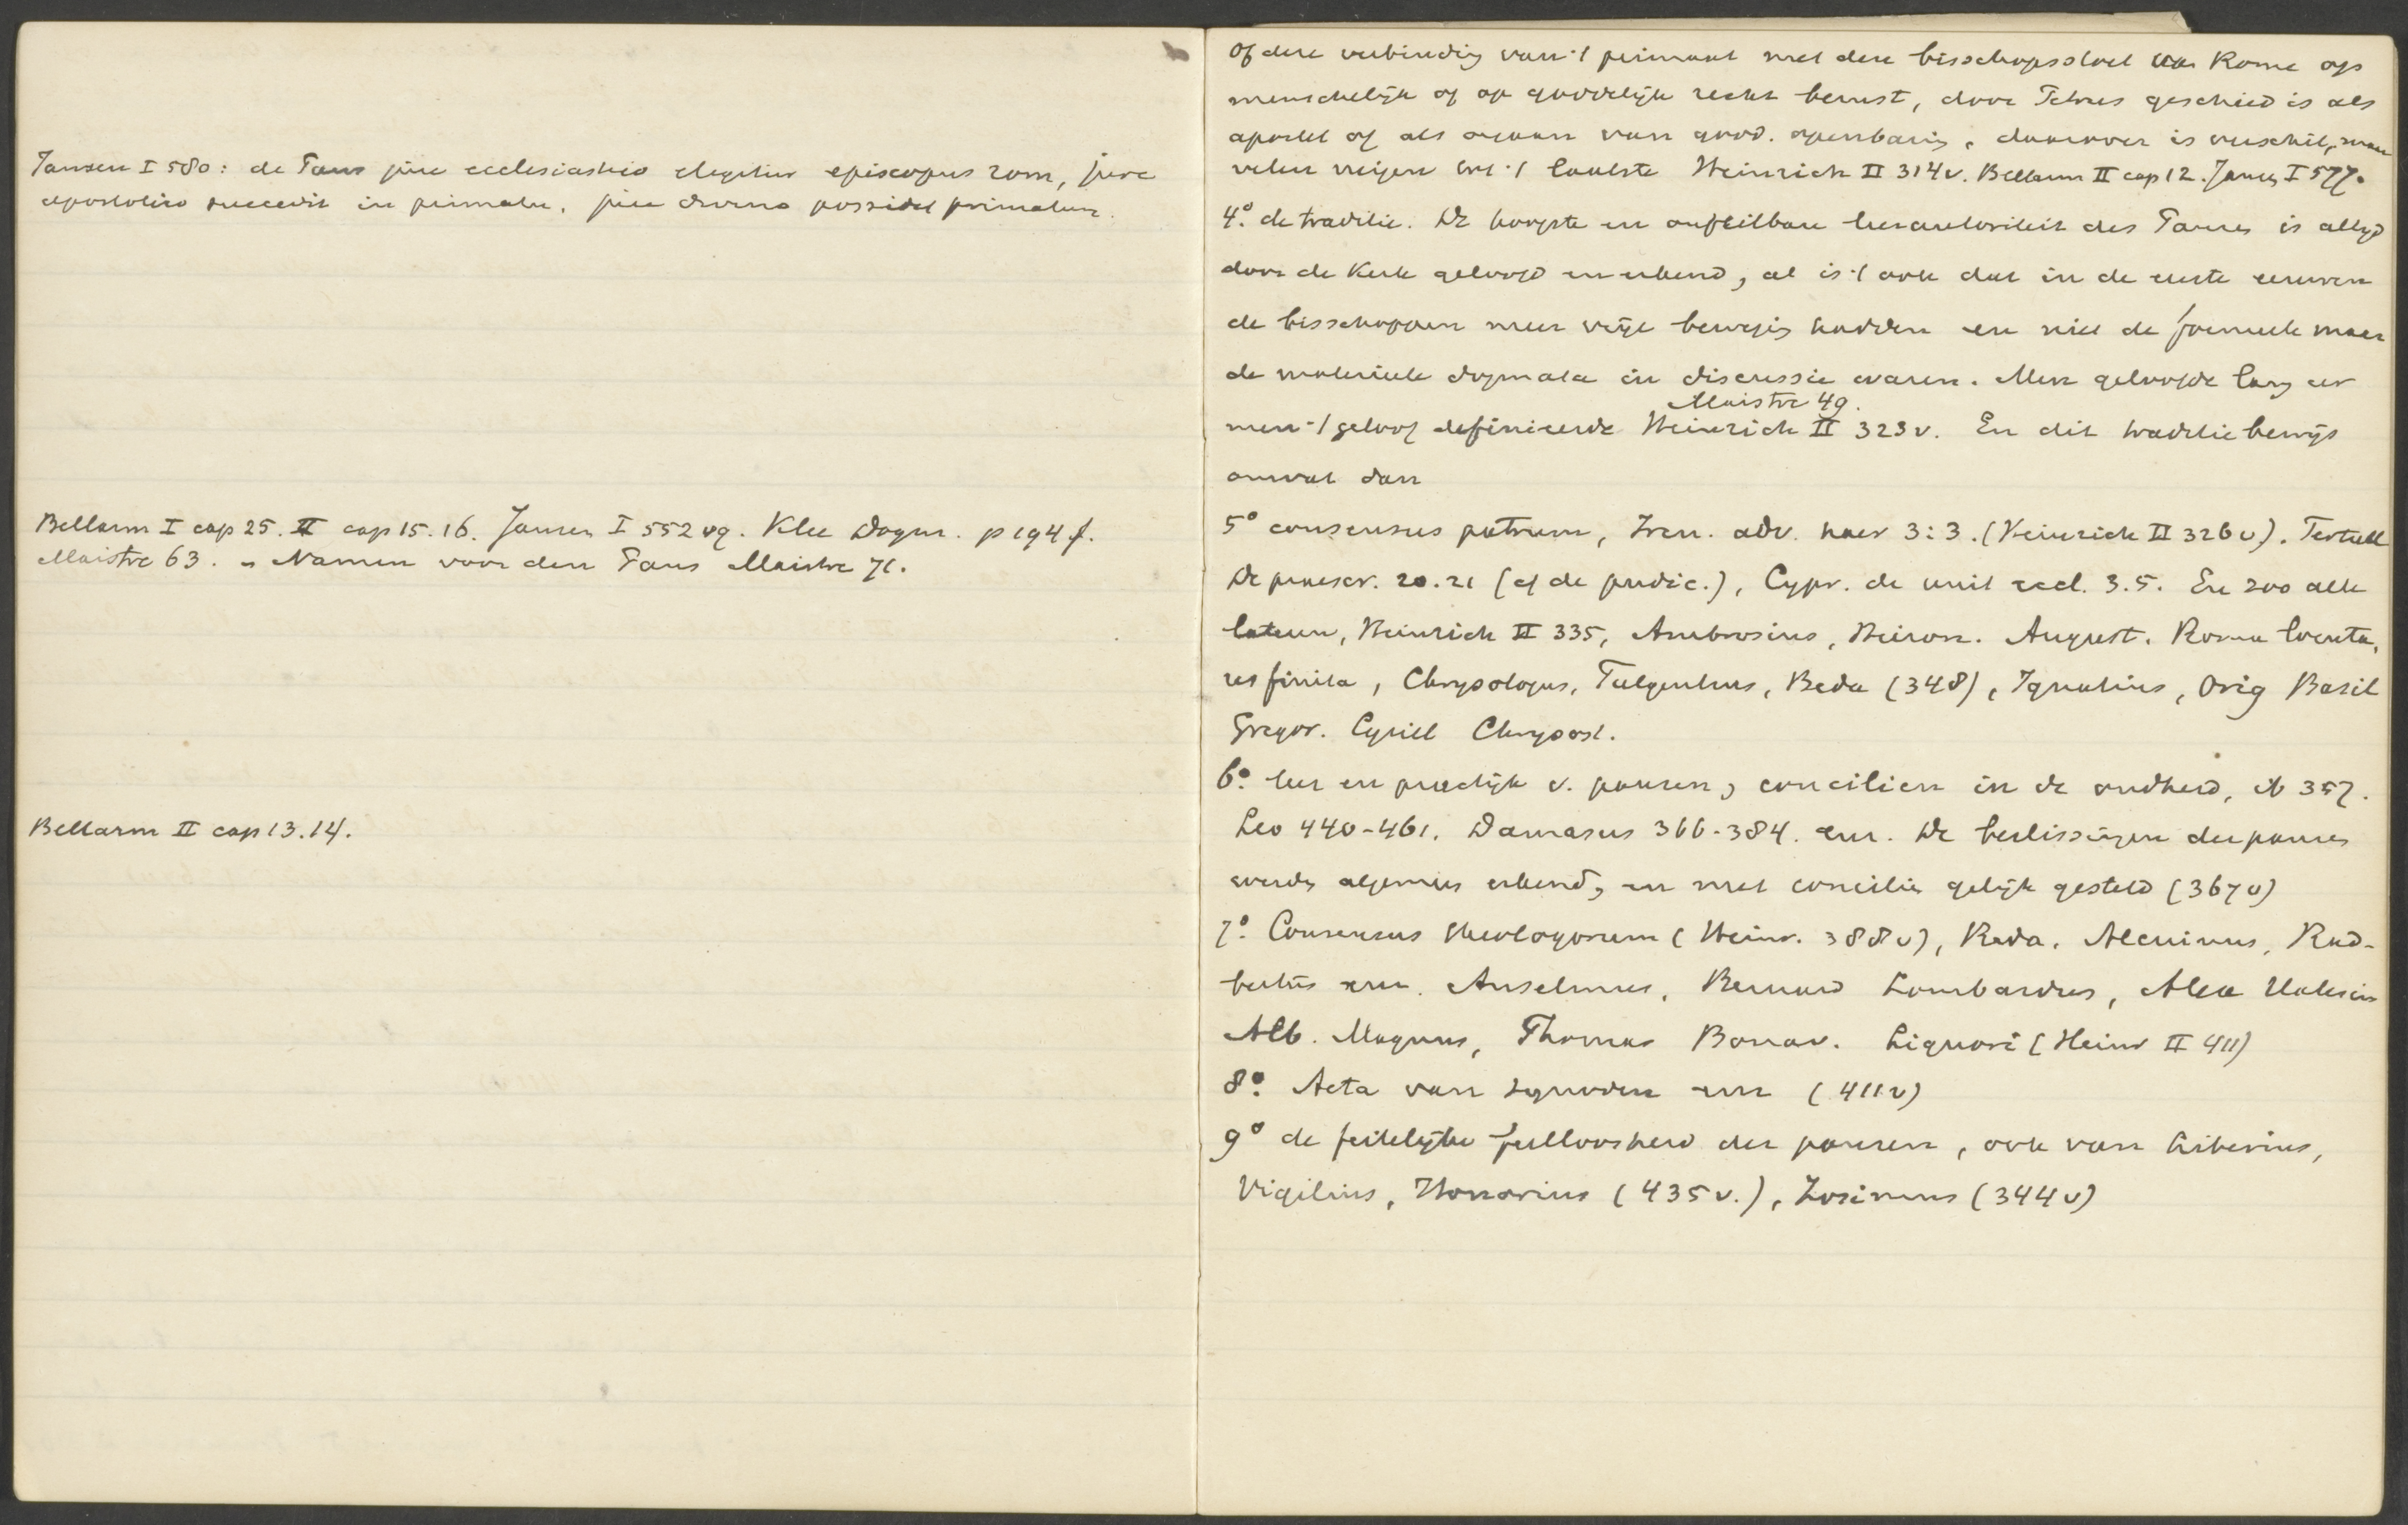 Jansen I 580: de Paus jure ecclesiastico elegitur episcopus rom, jure
apostolico succedit in primatu, jure divino possidet primatum.
Bellarm I cap 25. II cap 15. 16. Jansen I 552 vg. Klee Dogm. p 194 f.
Maistre 63. Namen voor den Paus Maistre 71.
Bellarm II cap 13. 14.
Of deze verbinding van 't primaat met den bisschopsstoel van Rome op
menschelijk of op goddelijk recht berust, door Petrus geschied is als
apostel of als orgaan van godd. openbaring, daarover is verschil, maar
velen neigen tot 't laatste Heinrich II 314v. Bellarm II cap 12. Jansen I 577.
4º. de traditie. De hoogste en onfeilbare leerautoriteit des Pausen is altijd
door de Kerk geloofd en erkend, al is 't ook dat in de eerste eeuwen
de bisschoppen meer vrije beweging hadden en niet de formeele maar
de materieele dogmata in discussie waren. Men geloofde lang eer
Maistre 49.
men 't geloof definieerde Heinrich II 323v. En dit traditiebewijs
omvat dan
5º consensus patrum, Iren. adv. haer 3:3. (Heinrich II 326v). Tertull
De praescr. 20. 21 (cf de pudic.), Cypr. de unit eccl. 3. 5. En zoo alle
lateren, Heinrich II 335, Ambrosius, Hieron. August. Roma locuta,
res finita, Chrysologus, Fulgentius, Beda (348), Ignatius, Orig Basil
Gregor. Cyrill Chrysost.
6º. leer en practijk v. pausen, concilien in de oudheid, ib 357.
Leo 440-461. Damasus 366-384. enz. De beslissingen der pausen
werden algemeen erkend, en met concilien gelijk gesteld (367v)
7º. Consensus theologorum (Heinr. 388v), Beda, Alcuinus, Rad-
bertus enz. Anselmus, Bernard Lombardus, Alex Halesius
Alb. Magnus, Thomas Bonav. Liguori (Heinr II 411)
8º. Acta van synoden enz (411v)
9º de feitelijke feilloosheid der pausen, ook van Liberius,
Vigilius, Honorius (435v.), Zosimus (344v)